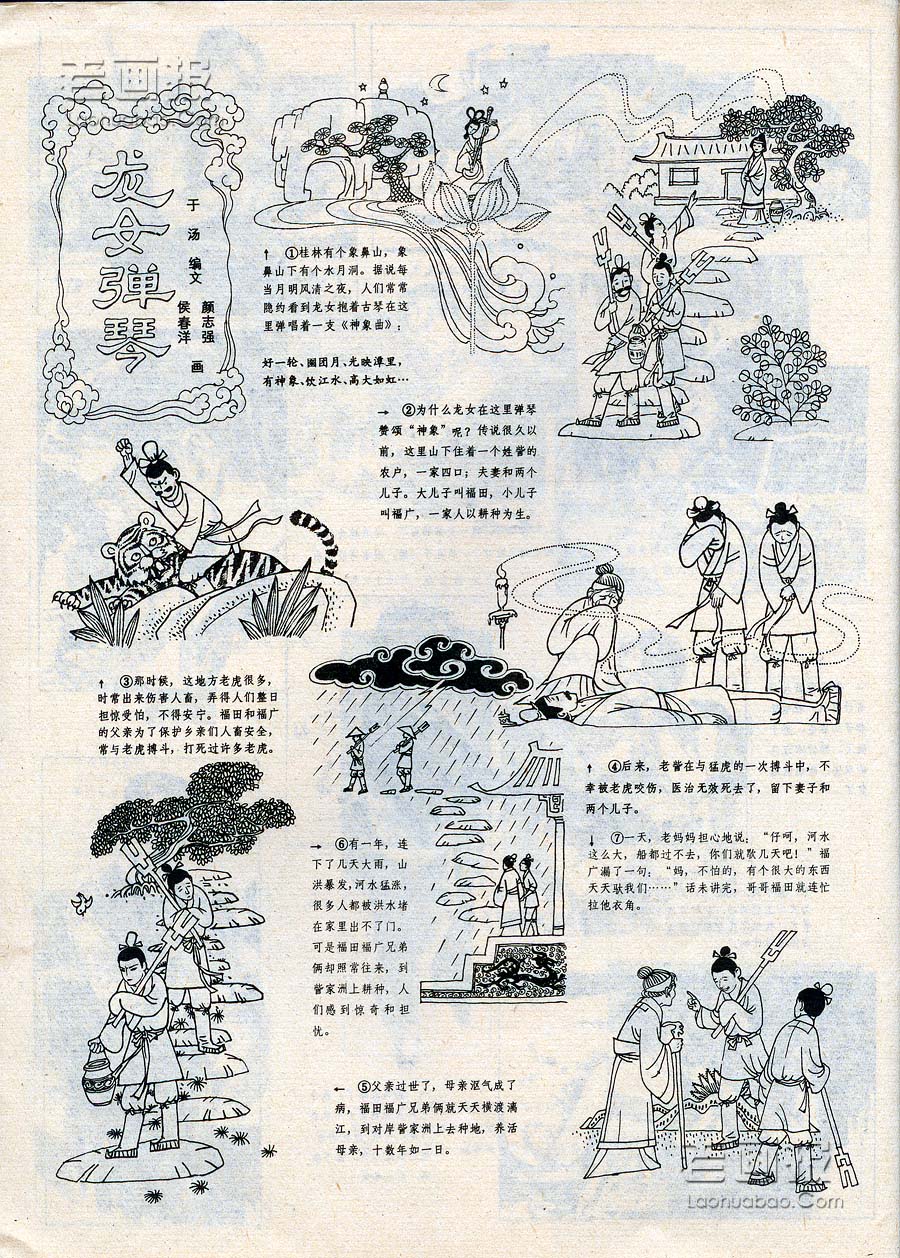 老画报
龙女弹琴
于汤 编文
颜志强
侯春洋 画
↑ ①桂林有个象鼻山，象
鼻山下有个水月洞。据说每
当月明风清之夜，人们常常
隐约看到龙女抱着古琴在这
里弹唱着一支《神象曲》：
好一轮、圈团月、光映潭里，
有神象、饮江水、高大如虹…
→ ②为什么龙女在这里弹琴
赞颂“神象”呢？传说很久以
前，这里山下住着一个姓訾的
农户，一家四口；夫妻和两个
儿子。大儿子叫福田，小儿子
叫福广，一家人以耕种为生。
↑ ③那时候，这地方老虎很多，
时常出来伤害人畜，弄得人们整日
担惊受怕，不得安宁。福田和福广
的父亲为了保护乡亲们人畜安全，
常与老虎搏斗，打死过许多老虎。
↑ ④后来，老訾在与猛虎的一次搏斗中，不
幸被老虎咬伤，医治无效死去了，留下妻子和
两个儿子。
← ⑤父亲过世了，母亲沤气成了
病，福田福广兄弟俩就天天横渡漓
江，到对岸訾家洲上去种地，养活
母亲，十数年如一日。
→ ⑥有一年，连
下了几天大雨，山
洪暴发，河水猛涨，
很多人都被洪水堵
在家里出不了门。
可是福田福广兄弟
俩却照常往来，到
訾家洲上耕种，人
们感到惊奇和担
忧。
↓ ⑦一天，老妈妈担心地说：“仔呵，河水
这么大，船都过不去，你们就歇几天吧！”福
广漏了一句：“妈，不怕的，有个很大的东西
天天驮我们……”话未讲完，哥哥福田就连忙
拉他衣角。
老画报
Laohuabao.Com